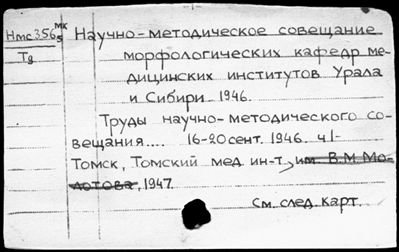 Нтс356 мк 5
Т8
Научно-методическое совещание
морфологических кафедр ме-
дицинских институтов Урала
и Сибири 1946.
Труды научно-методического со-
вещания.... 16-20 сент. 1946. ч.I-
Томск, Томский мед. ин-т, им. В.М. Мо-
лотова, 1947.
См. след. карт.